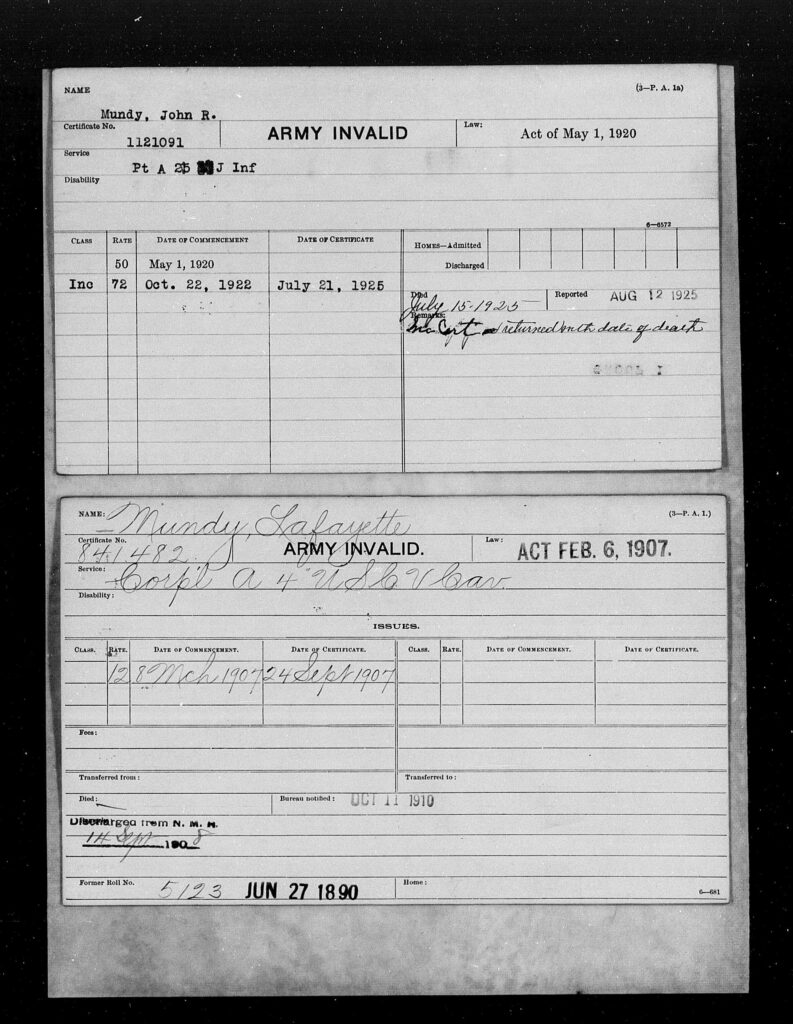 NAME
(3—P. A. 1a)
Mundy, John R.
Certificate No.
1121091
ARMY INVALID
Law:
Act of May 1, 1920
Service
Pt A 25 J Inf
Disability
6—6572
CLASS RATE DATE OF COMMENCEMENT DATE OF CERTIFICATE
HOMES—Admitted
Discharged
50 May 1, 1920
Inc 72 Oct. 22, 1922 July 21, 1925
Died
July 15-1925
Reported AUG 12 1925
Remarks:
Inc Cert returned with date of death
NAME:
Mundy, Lafayette
(3—P. A. 1.)
Certificate No.
841.482.
ARMY INVALID.
Law:
ACT FEB. 6, 1907.
Service:
Corp'l A 4" U S C V Cav.
Disability:
ISSUES.
CLASS. RATE. DATE OF COMMENCEMENT. DATE OF CERTIFICATE. CLASS. RATE. DATE OF COMMENCEMENT. DATE OF CERTIFICATE.
12 8 Mch 1907 24 Sept 1907
Fees:
Transferred from: Transferred to:
Died: Bureau notified: OCT 11 1910
Discharged from N. M. H.
14 Sept 1908
Former Roll No. 5123 JUN 27 1890 Home:
6—681